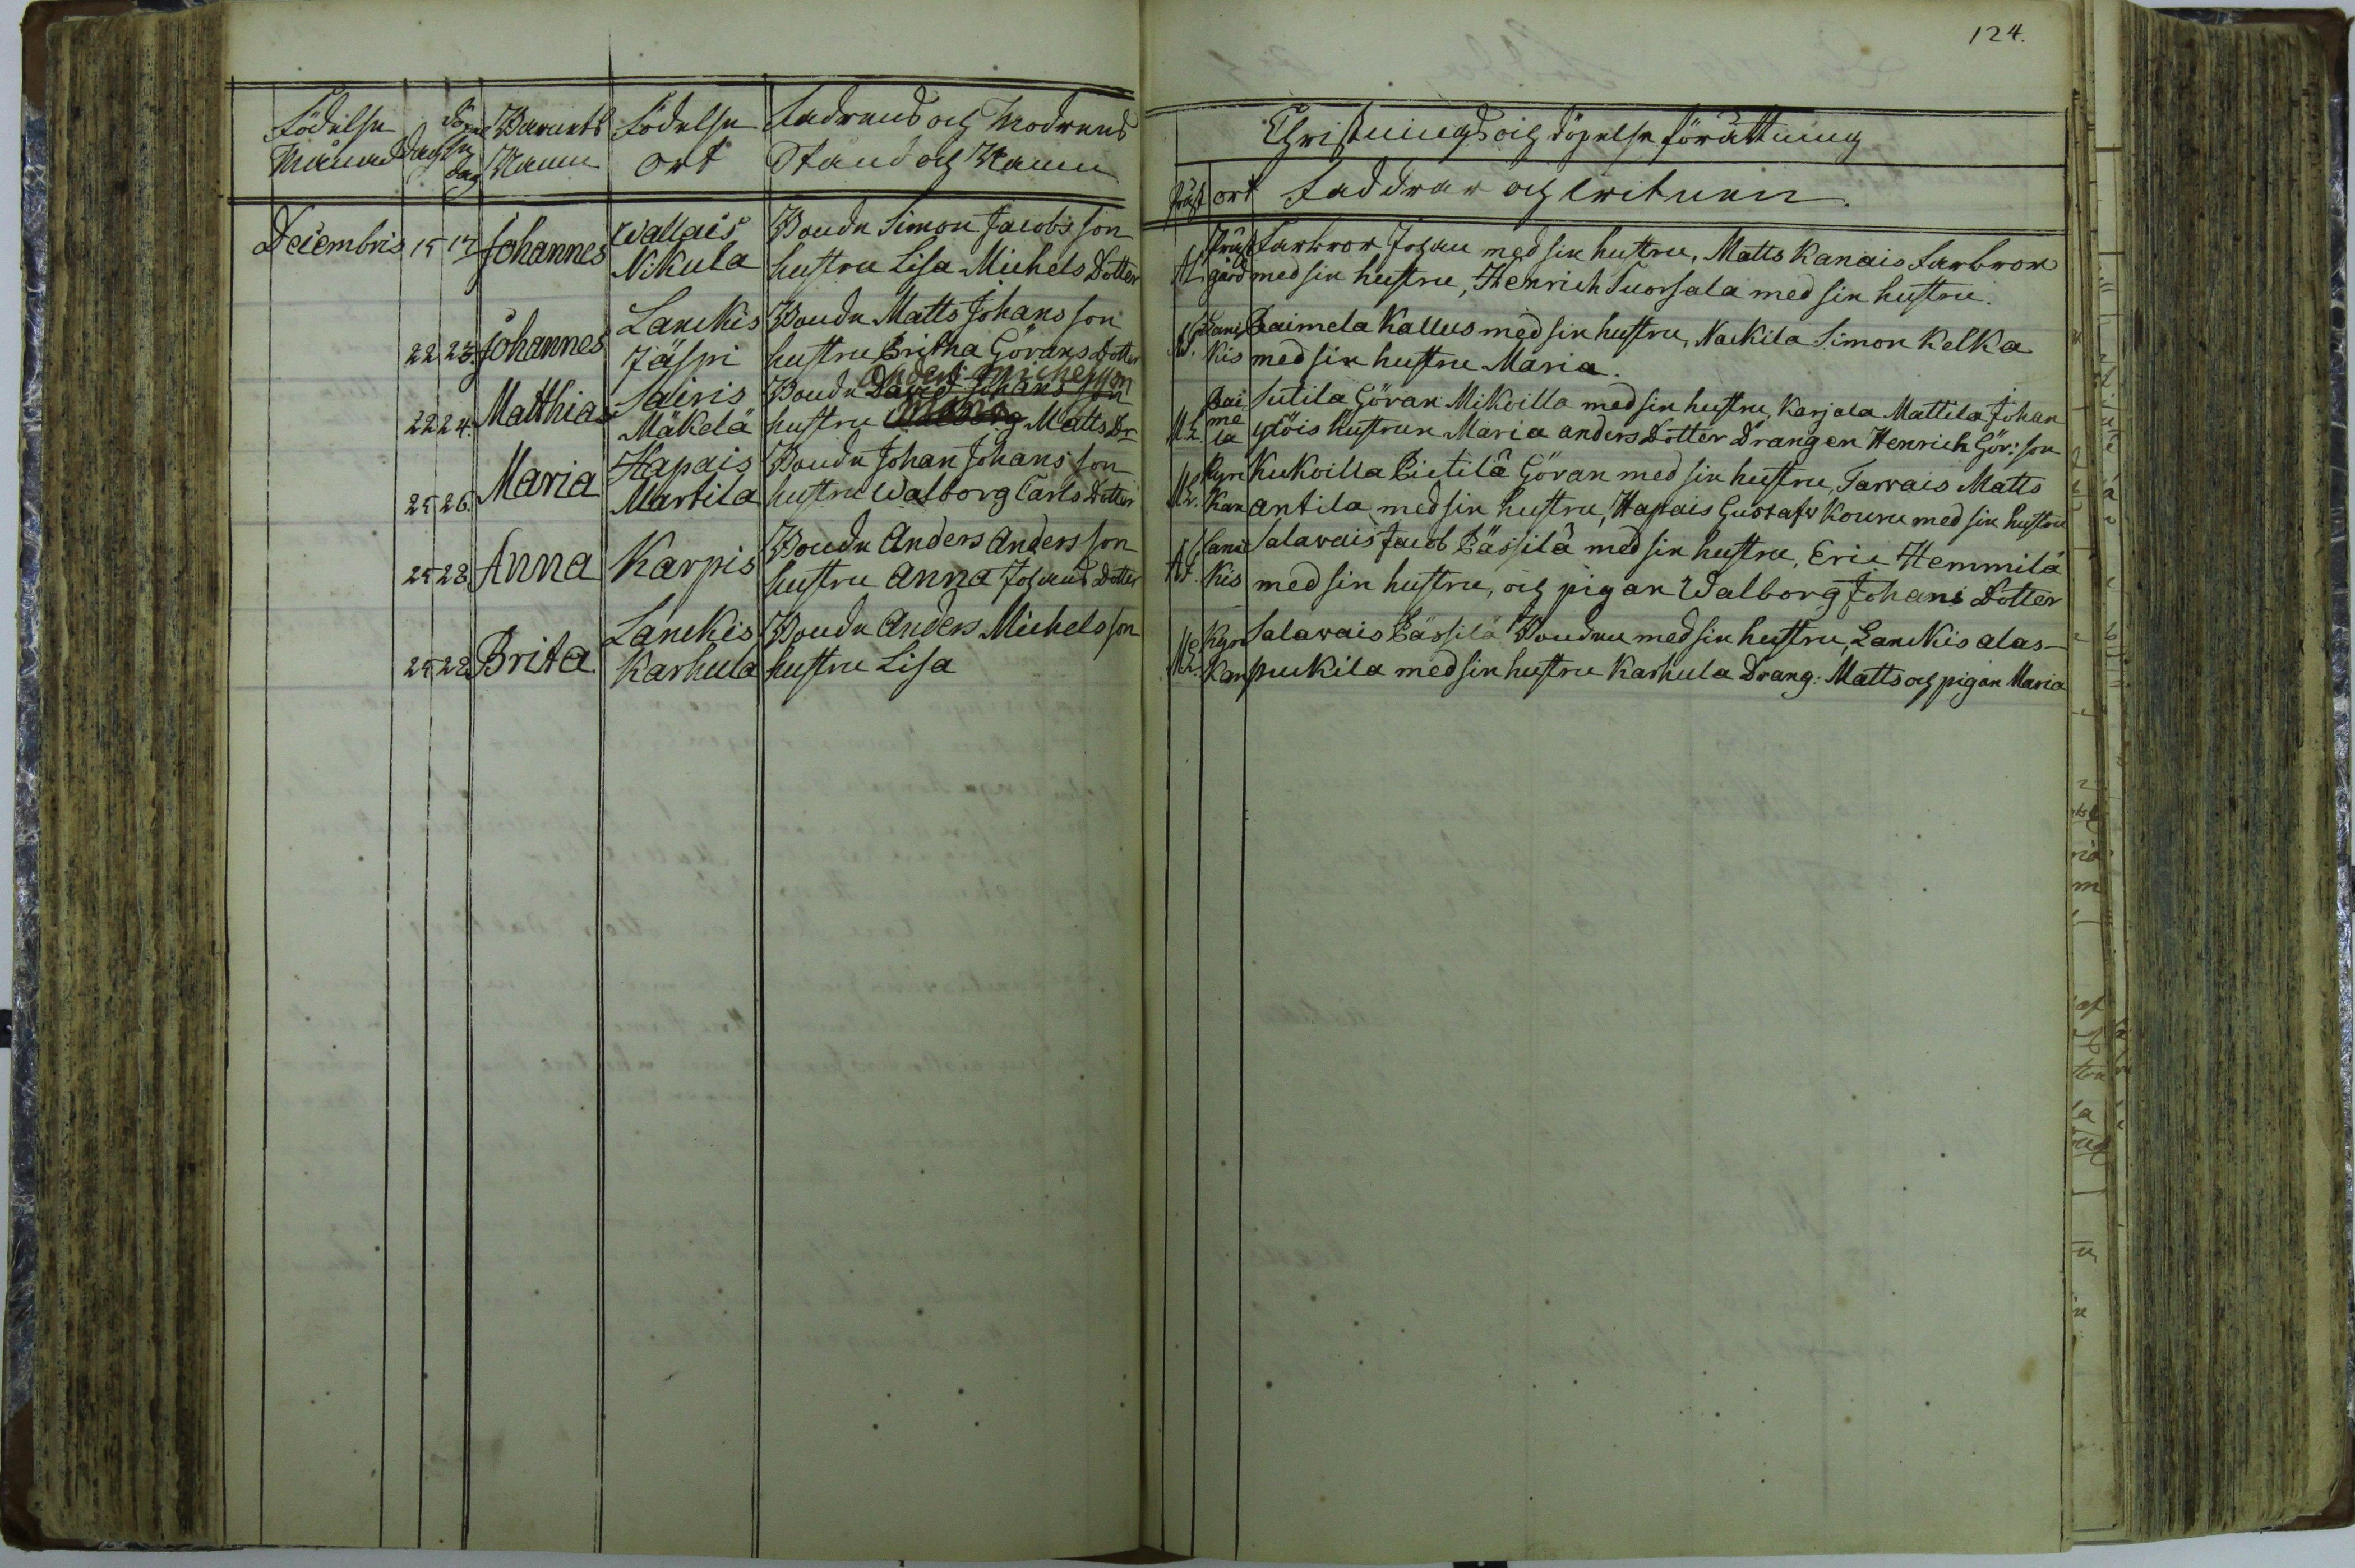 124.
Födelse Månad dag döpelse dag Barnets Namn Födelse ort Fadrens och Modrens Stånd och Namn
Christnings och döpelse förättning
präst ort Faddrar och witnen.
Decembris 15 17 Johannes Wallais Nikula Bonde Simon Jacobs son
hustru Lisa Michels Dotter
22 23 Johannes Lanckis Jäspi Bonde Matts Johans son
hustru Britha Görans Dotter
22 24. Matthias Sairis Mäkelä Bonde David Johans son Anders Michelsson
hustru Walborg Maria Matts Dr
25 26. Maria Hapais Martila Bonde Johan Johans son
hustru Walborg Carls Dotter
25 28 Anna Karpis Bonde Anders Anders son
hustru Anna Johans Dotter
25 28 Brita Lanckis Karhula Bonde Anders Michels son
hustru Lisa
präst Farbror Johan med sin hustru, Matts Kanais Farbror
gård med sin hustru, Henrich Tuorsala med sin hustru.
Lanc Raimela Kallus med sin hustru, Nackila Simon Kelka
kis med sin hustru Maria.
Rai Sutila Göran Mikoilla med sin hustru, Karjala Mattila Johan
me la ylöis hustrun Maria anders Dotter Drangen Henrich Gör: son
Kyrc Kukoilla Pietilä Göran med sin hustru, Tarvais Matts
kan antila med sin hustru, Hapais Gustafv Kouru med sin hustru
Lanc Salavais Jacob Pässilä med sin hustru, Eric Hemmilä
kis med sin hustru, och pigan Walborg Johans Dotter
Kyrc Salavais Pässilä Bonden med sin hustru, Lanckis alas-
kan puckila med sin hustru Karhula Drang: Matts och pigan Maria